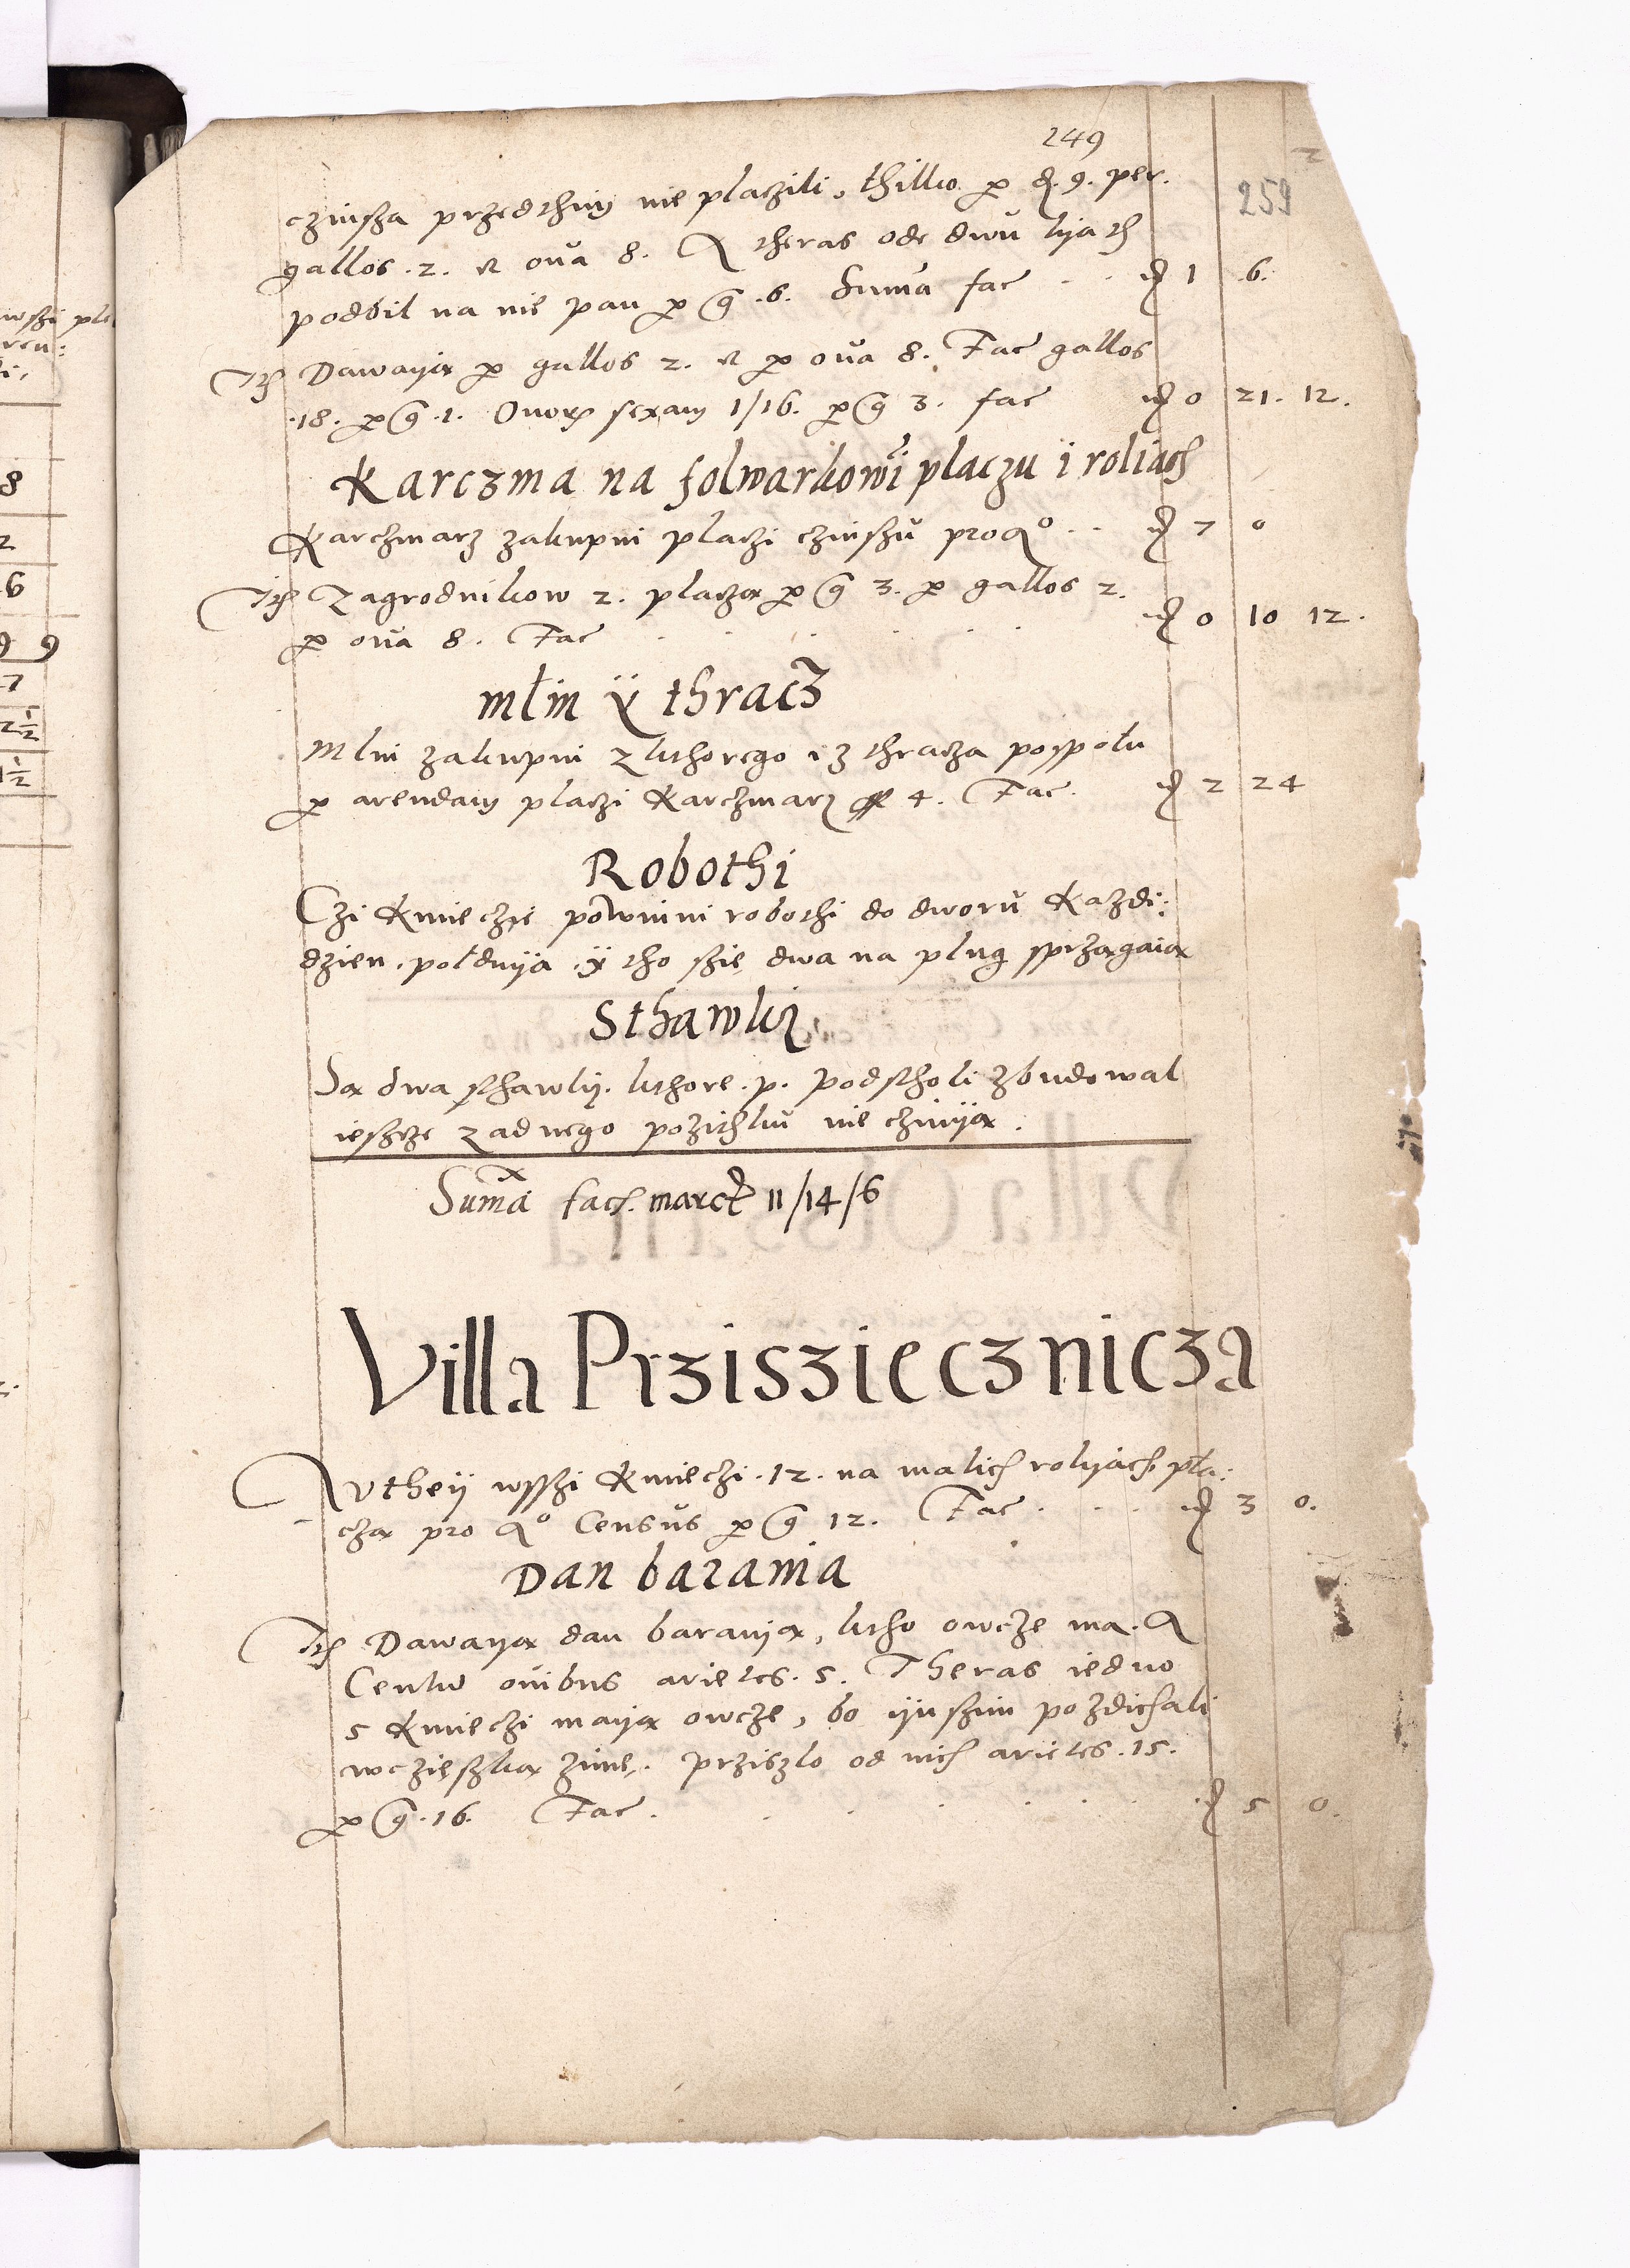 249
259
czinsza przedthim nie placzili, thilko per d. 9. per
gallos .2. et ova 8. A theras ode dwu lyath
podbil na nie pan per g .6. Summa fac 1 6.
It Dawaya per gallos 2. et per ova 8. Fac gallos
.18. per g .1. Ovorum sexam 1/16. per g 3. fac 0 21. 12.
Karczma na folwarkowi placzu i roliach
Karczmarz zakupni placzi czinszu pro A° 7 0
It Zagrodnikow 2. placza per g 3. per gallos 2.
per ova 8. Fac 0 10 12.
młin ÿ thracz
Mlin zakupni z kthorego i z thracza pospołu
per arendam placzi Karczmarz 4. Fac. 2 24
Robothi
Czi Kmieczie powinni robothi do dworu Kazdi:
dzien, połdnya .ÿ tho szie dwa na plug sprzagaia
Sthawki
Sa dwa sthawky. kthore .p. podstholi zbudowal
iescze zadnego pozithku nie czinya.
Summa fach. marck 11/14/6
Villa Przisziecznicza
A vthey wsszi Kmieczi .12. na malich rolyach pla:
cza pro A° Census per g 12. Fac 3 0.
Dan barania
It Dawaya dan baranya, ktho owcze ma. A
Centum ovibus arietes .5. Theras iedno
5 Kmieczi maya owcze, bo ynszim pozdichali
wcziężka zimę. Prziszlo od nich arietes .15.
per g .16. Fac. 5 0.